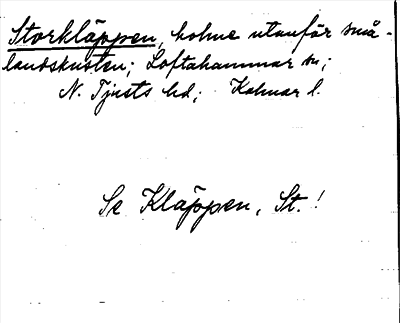 Storkläppen, holme utanför små-
landskusten; Loftahammar sn;
N. Tjusts hd; Kalmar l.
Se Kläppen, St.!